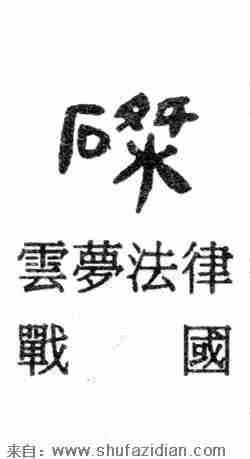 磔
雲夢法律
戰國
来自：www.shufazidian.com